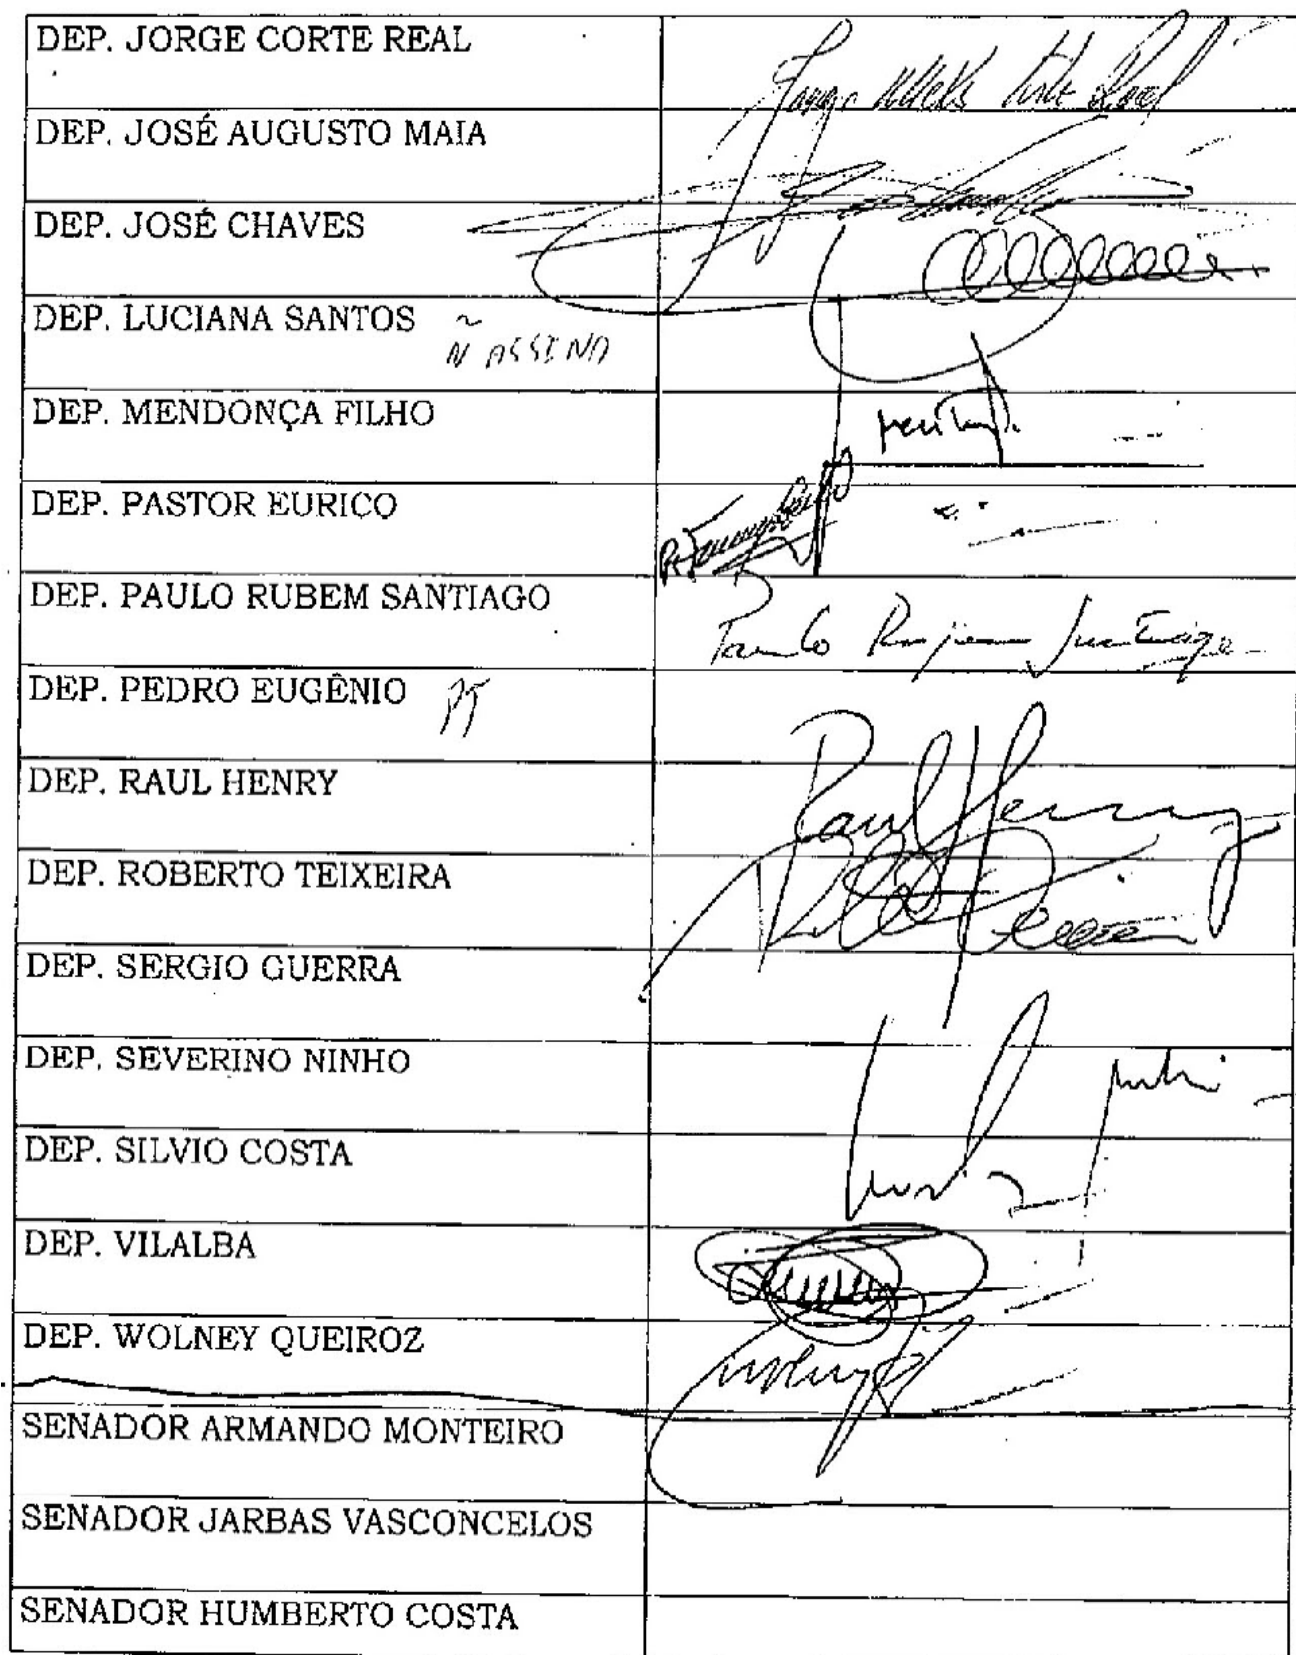 DEP. JORGE CORTE REAL
DEP. JOSÉ AUGUSTO MAIA
DEP. JOSÉ CHAVES
DEP. LUCIANA SANTOS Ñ ASSINA
DEP. MENDONÇA FILHO
DEP. PASTOR EURICO
DEP. PAULO RUBEM SANTIAGO Paulo Rubem Santiago
DEP. PEDRO EUGÊNIO PT
DEP. RAUL HENRY Raul Henry
DEP. ROBERTO TEIXEIRA
DEP. SERGIO GUERRA
DEP. SEVERINO NINHO
DEP. SILVIO COSTA
DEP. VILALBA
DEP. WOLNEY QUEIROZ
SENADOR ARMANDO MONTEIRO
SENADOR JARBAS VASCONCELOS
SENADOR HUMBERTO COSTA